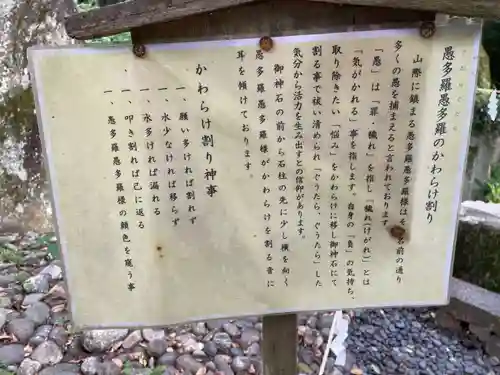 愚多羅愚多羅のかわらけ割り
ぐたらぐたら
山際に鎮まる愚多羅愚多羅様はそ 名前の通り
多くの愚を捕まえると言われております。
「愚」は「罪、穢れ」を指し「穢れ(けがれ)」とは
「気がかれる」事を指します。自身の「負」の気持ち、
取り除きたい「悩み」をかわらけに移し御神石にて
割る事で祓い清められ「ぐうたら、ぐうたら」した
気分から活力を生み出すとの信仰があります。
御神石の前から石柱の先に少し横を向く
愚多羅愚多羅様がかわらけを割る音に
耳を傾けております。
かわらけ割り神事
一、願い多ければ割れず
一、水少なければ移らず
一、水多ければ漏れる
一、叩き割れば己に返る
一、愚多羅愚多羅様の顔色を窺う事